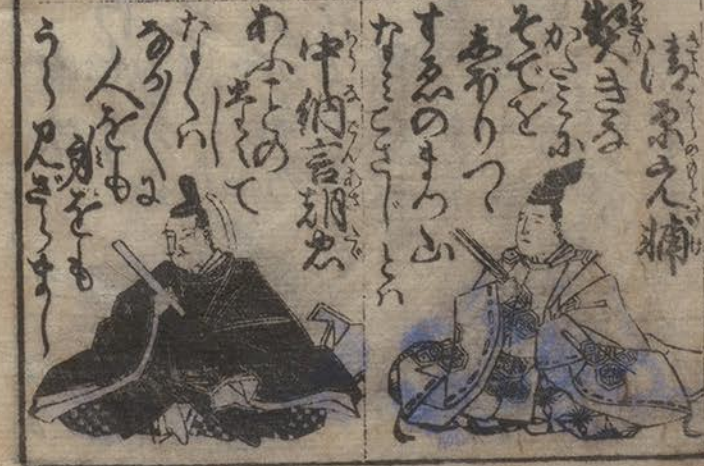 清原元輔
契きな
かたミに
そでを
しぼりつゝ
すゑのまつ山
なミこさじとハ
中納言朝忠
あふことの
たえて
しなくハ
なか〱に
人をも
身をも
うらみざらまし